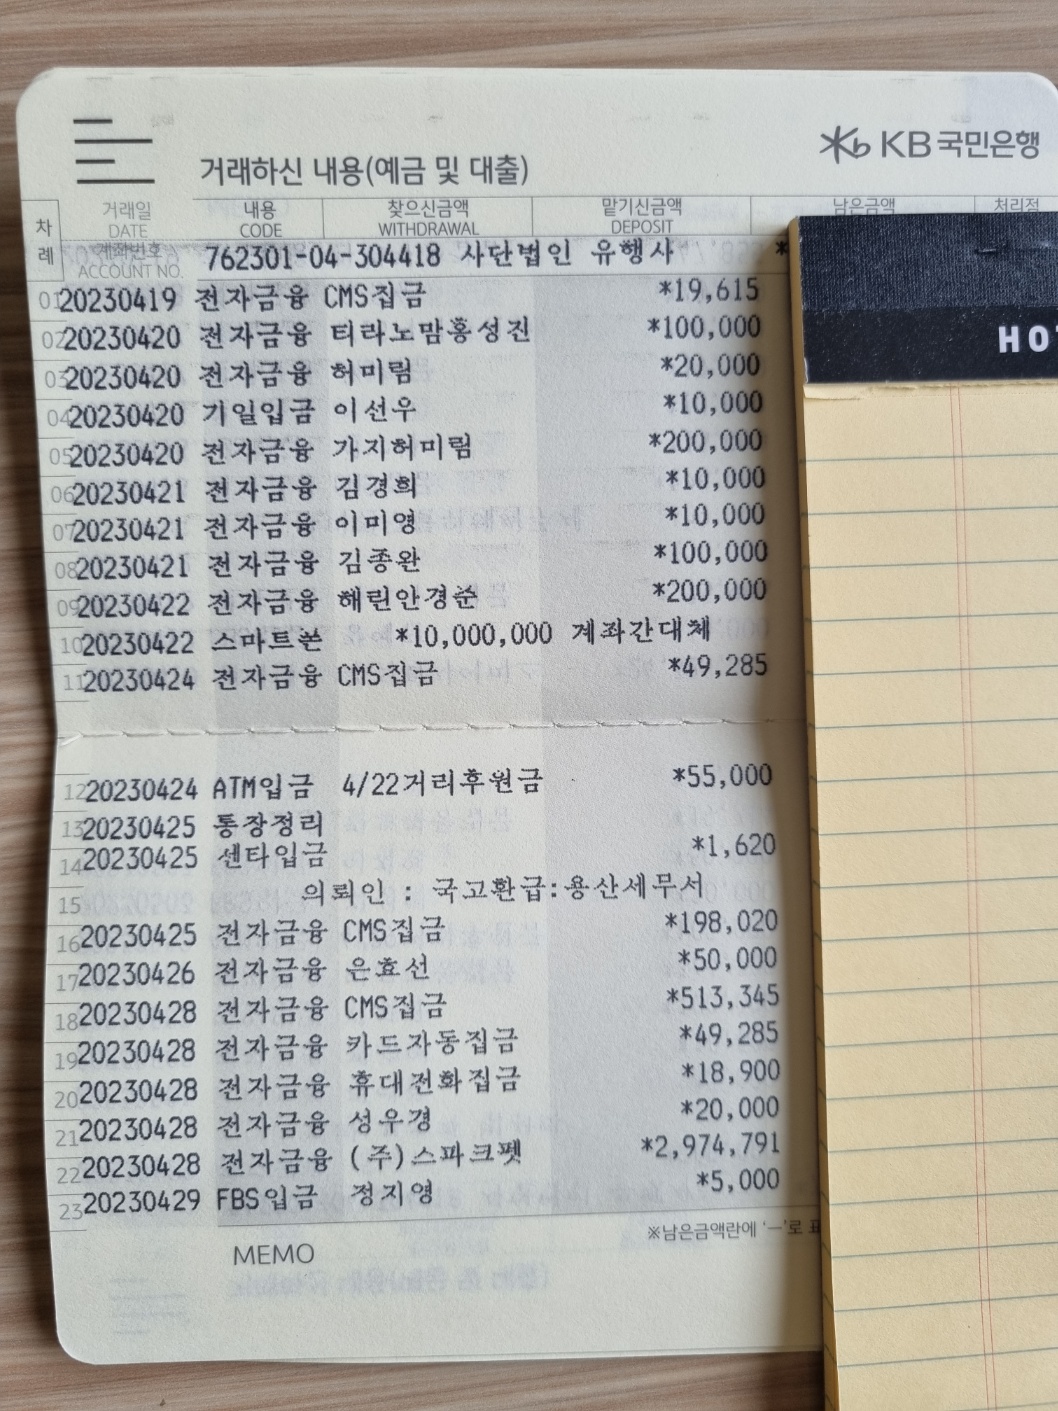 KB국민은행
거래하신 내용(예금 및 대출)
차례 거래일 DATE 내용 CODE 찾으신금액 WITHDRAWAL 맡기신금액 DEPOSIT 남은금액 처리점
계좌번호 ACCOUNT NO. 762301-04-304418 사단법인 유행사 *
01 20230419 전자금융 CMS집금 *19,615
02 20230420 전자금융 티라노맘홍성진 *100,000
03 20230420 전자금융 허미림 *20,000
04 20230420 기일입금 이선우 *10,000
05 20230420 전자금융 가지허미림 *200,000
06 20230421 전자금융 김경희 *10,000
07 20230421 전자금융 이미영 *10,000
08 20230421 전자금융 김종완 *100,000
09 20230422 전자금융 해린안경준 *200,000
10 20230422 스마트폰 *10,000,000 계좌간대체
11 20230424 전자금융 CMS집금 *49,285
12 20230424 ATM입금 4/22거리후원금 *55,000
13 20230425 통장정리
14 20230425 센타입금 *1,620
15 의뢰인 : 국고환급:용산세무서
16 20230425 전자금융 CMS집금 *198,020
17 20230426 전자금융 은효선 *50,000
18 20230428 전자금융 CMS집금 *513,345
19 20230428 전자금융 카드자동집금 *49,285
20 20230428 전자금융 휴대전화집금 *18,900
21 20230428 전자금융 성우경 *20,000
22 20230428 전자금융 (주)스파크펫 *2,974,791
23 20230429 FBS입금 정지영 *5,000
※남은금액란에 '—'로 표
MEMO